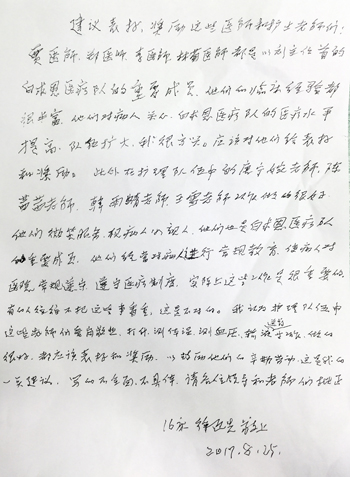 建议表扬、奖励这些医师和护士老师们:
贾医师、郑医师、李医师、林蓉医师都是以刘主任首的
白求恩医疗队的重要成员,他们的临床经验都
很丰富,他们对病人关心,白求恩医疗队的医疗水平
提高,队伍扩大,我很高兴。应该对他们给表扬
和奖励。此外在护理队伍中的唐宁姣老师、陈
苗苗老师、韩雨晴老师、王雷老师工作做的很好,
他们微笑服务,视病人如亲人,他们也是白求恩医疗队
的重要成员,他们经常对病人进行宣规教育,使病人对
医院常规遵守,遵守医疗制度,实际上这些工作是很重要的。
有的人往往不把这些事看重,这是不对的。我认为护理队伍中
这些老师们爱岗敬业,打针、测体温、测血压、输液等,做的
很好,都应该表扬和奖励,以鼓励他们的辛勤劳动,这是我的
一点想法,写的不全面、不具体,请各主任领导和老师们批正
16床 徐 敬上
2017.8.25.